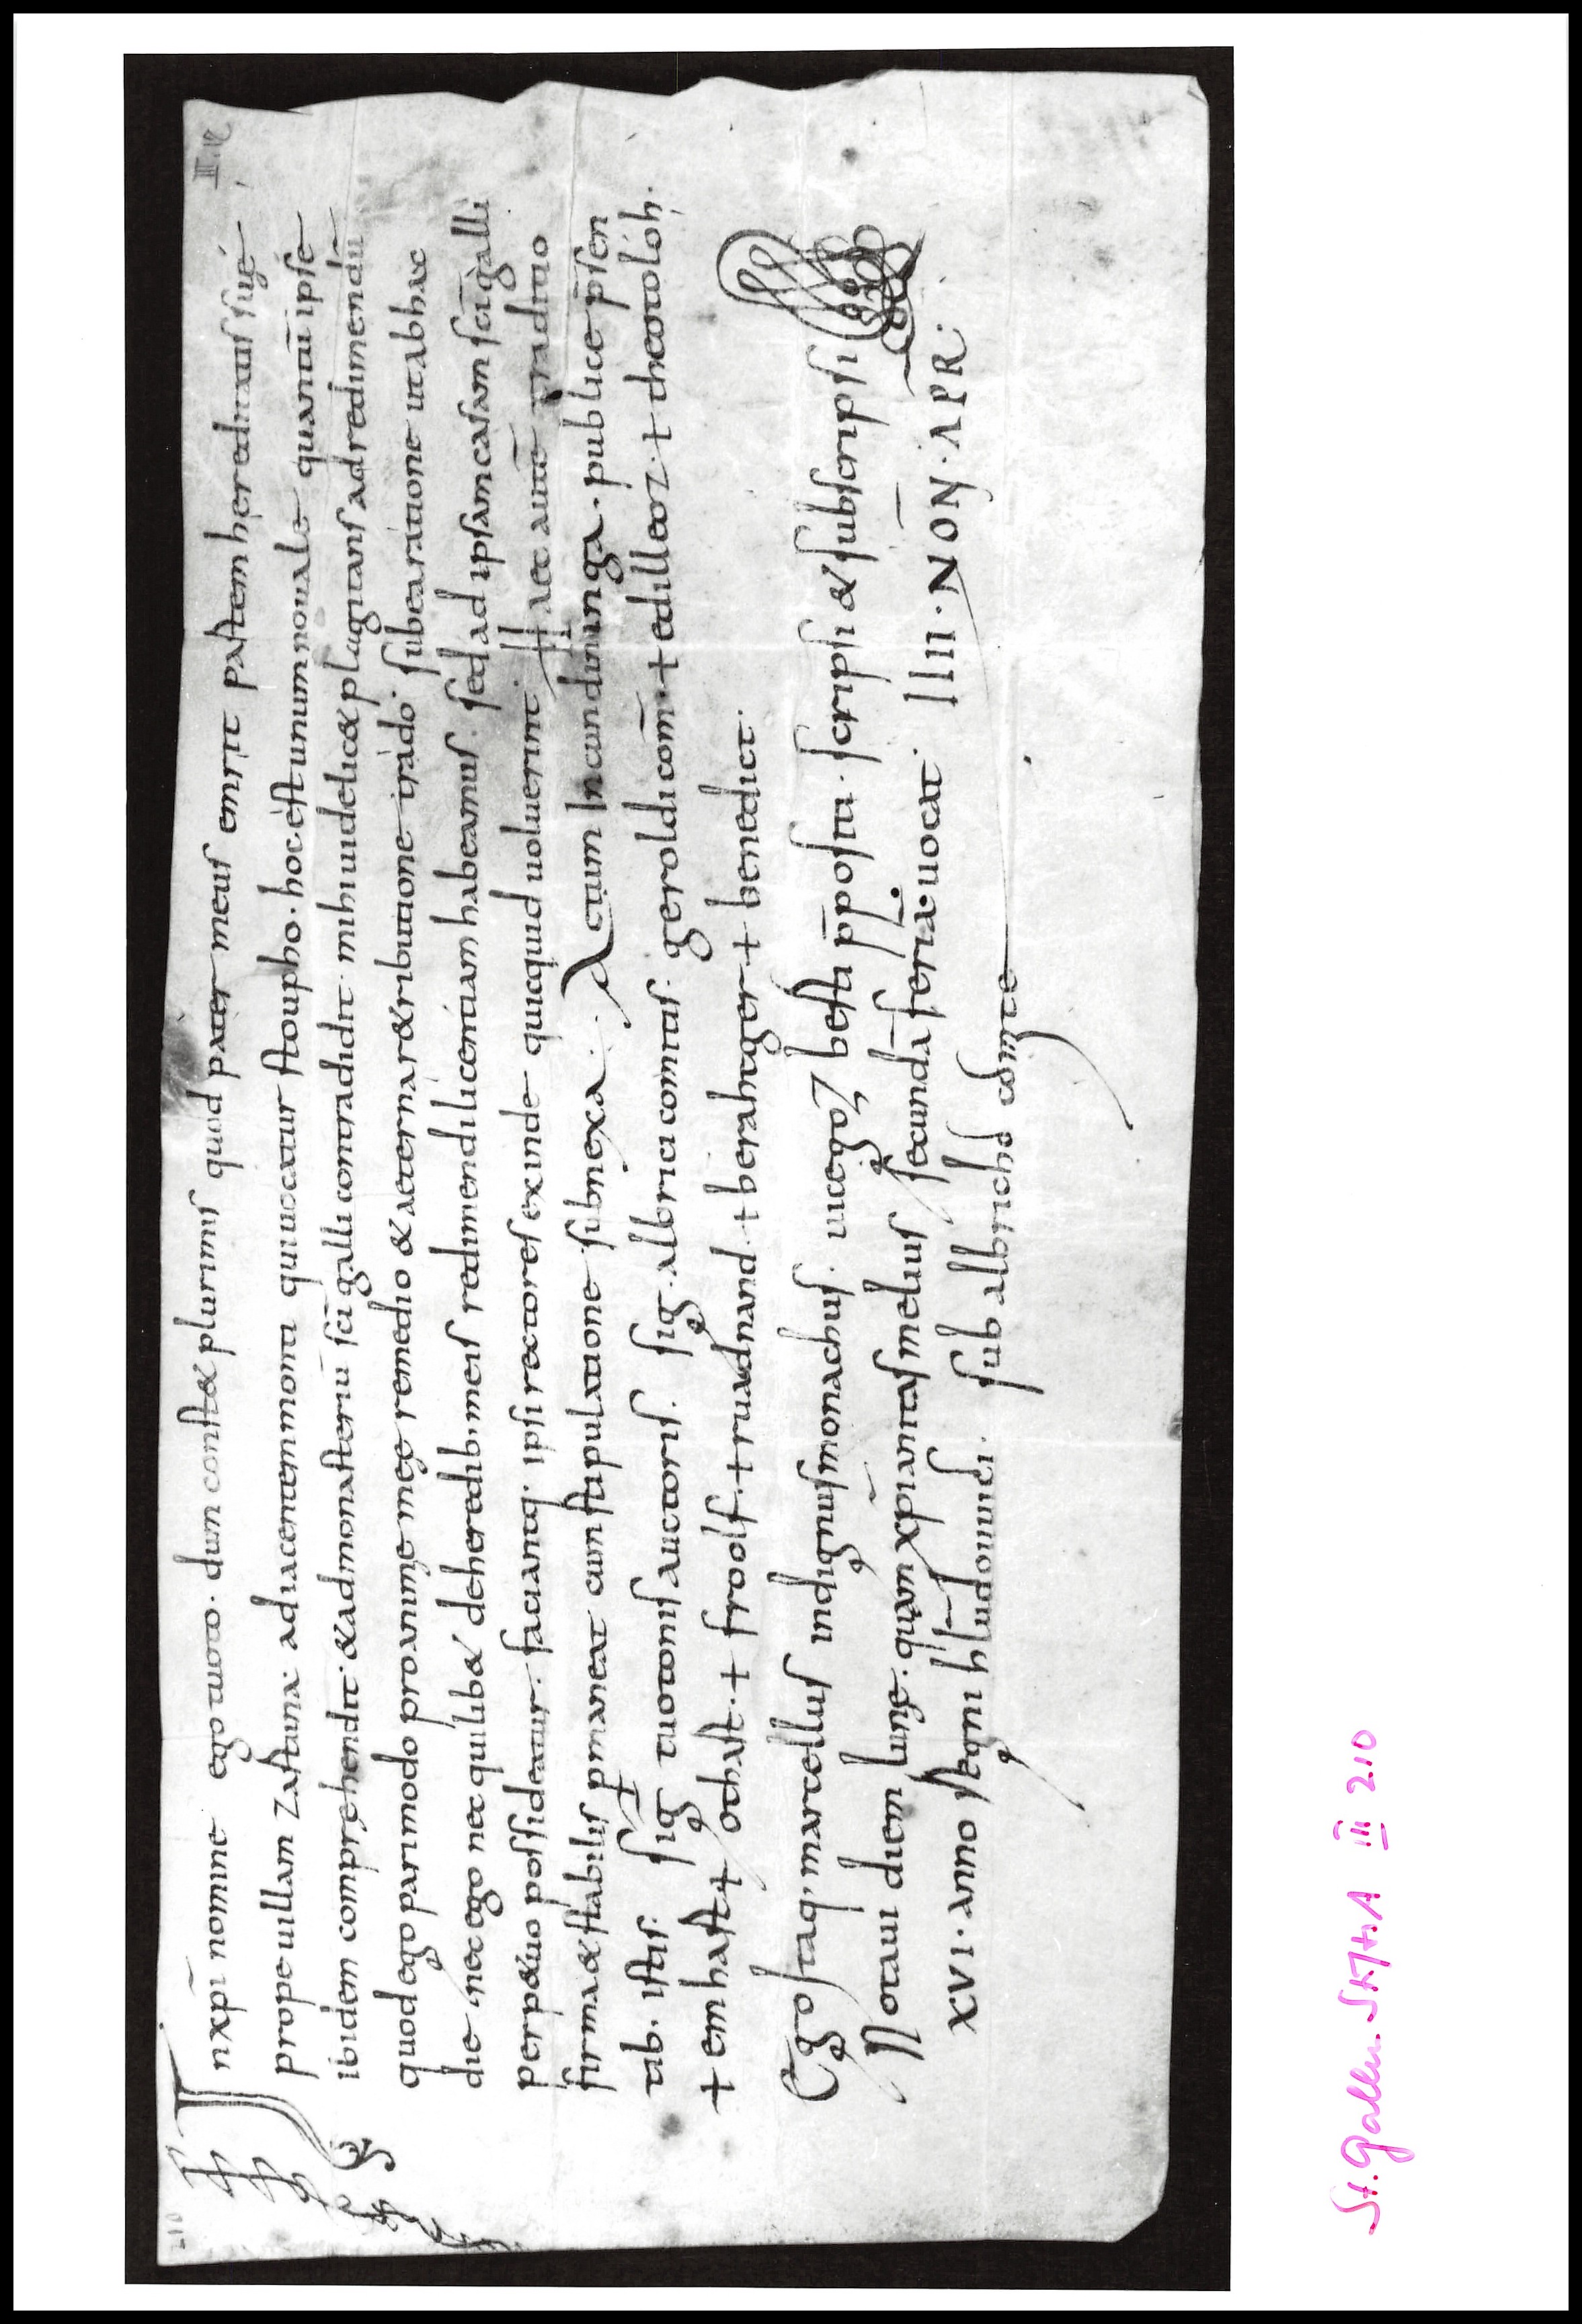 III. 12
210
In xpi nomine ego tuoto. dum constet plurimis quod pater meus emit partem hereditatis suę
prope uillam zastina adiacentem monti qui uocatur stoupho. hoc est unum nouale quantū ipse
ibidem comprehendit. et ad monasteriū sci galli contradidit. mihi uidelicet plagitans ad redimendū
quod ego pari modo pro anime meę remedio et aeterna retributione trado. sub ea ratione ut ab hac
die nec ego nec quilibet de heredib. meis redimendi licentiam habeamus. sed ad ipsam casam sci galli
perpetuo possideatur. faciantq. ipsi rectores exinde quicquid uoluerint. Haec autē traditio
firma et stabilis pmaneat cum stipulatione subnexa. Actum In cundinnga. publice psen
tib. istis. sig + tuotonis auctoris. sig. albrici comitis. geroldi com. + edilleoz. + theotoloh.
+ emhast + othast. + froolf. + ruadnand + berahtger + benedict.
Ego itaq. marcellus indignus monachus. uice goz berti ppositi. scripsi et subscripsi
Notaui diem lunę. quam xpianitas melius secundā feriā uocat. IIII. NON. APR.
XVI. anno regni hludouuici. sub albricho comite
St. Gallen StiftsA III 210